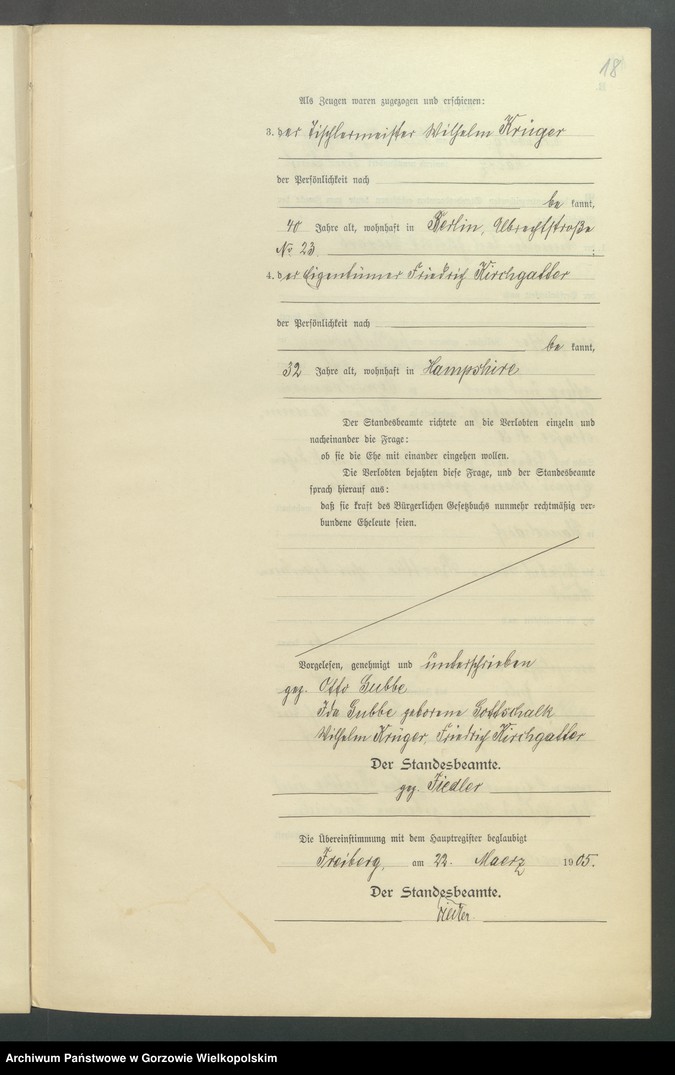 18
Als Zeugen waren zugezogen und erschienen:
3. der Tischlermeister Wilhelm Krüger
der Persönlichkeit nach
be kannt,
40 Jahre alt, wohnhaft in Berlin, Albrechtstraße
No 23 ;
4. der Eigentümer Friedrich Kirchgatter
der Persönlichkeit nach
be kannt,
32 Jahre alt, wohnhaft in Hampshire
Der Standesbeamte richtete an die Verlobten einzeln und
nacheinander die Frage:
ob sie die Ehe mit einander eingehen wollen.
Die Verlobten bejahten diese Frage, und der Standesbeamte
sprach hierauf aus:
daß sie kraft des Bürgerlichen Gesetzbuchs nunmehr rechtmäßig ver-
bundene Eheleute seien.
Vorgelesen, genehmigt und unterschrieben
gez. Otto Gubbe
Ida Gubbe geborene Gottschalk
Wilhelm Krüger, Friedrich Kirchgatter
Der Standesbeamte.
gez. Fiedler
Die Übereinstimmung mit dem Hauptregister beglaubigt
Freiberg, am 22. Maerz 1905.
Der Standesbeamte.
Archiwum Państwowe w Gorzowie Wielkopolskim